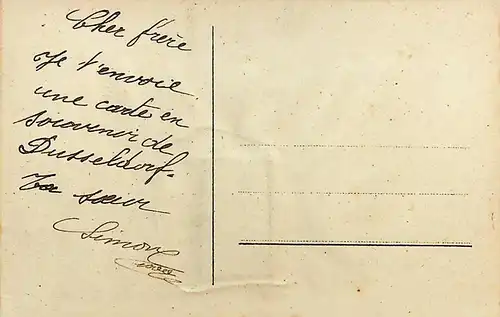 Cher frère
Je t'envoie
une carte en
souvenir de
Dusseldorf.
Ta sœur
Simone